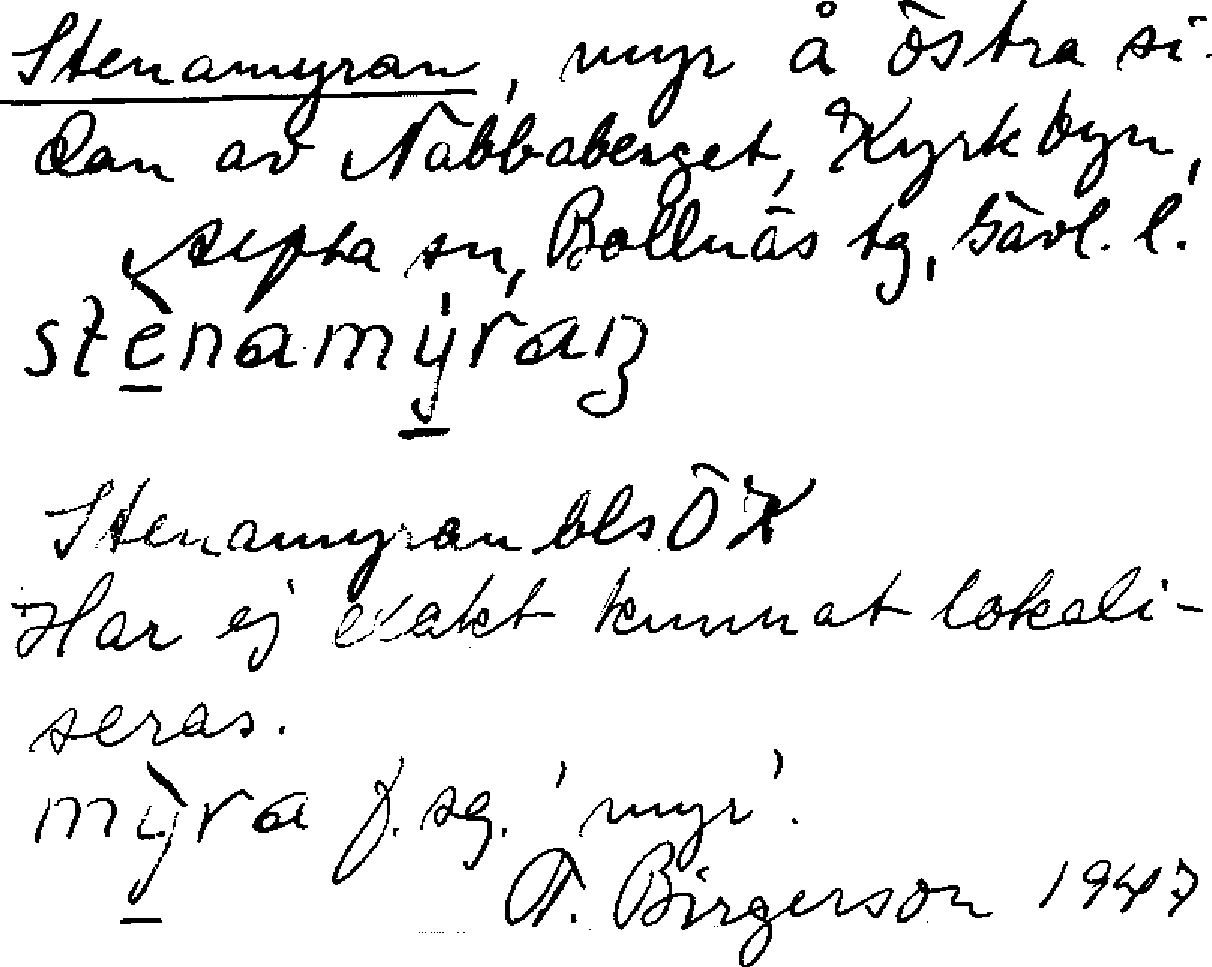 Stenamyran, myr å östra si-
dan av Nabbaberget, Kyrkbyn,
Alfta sn, Bollnäs tg, Gävl. l.
stènamýran
Stenamyran bls ÖK
Har ej exakt kunnat lokali-
seras.
mỳra f. sg. 'myr'.
T. Birgerson 1947